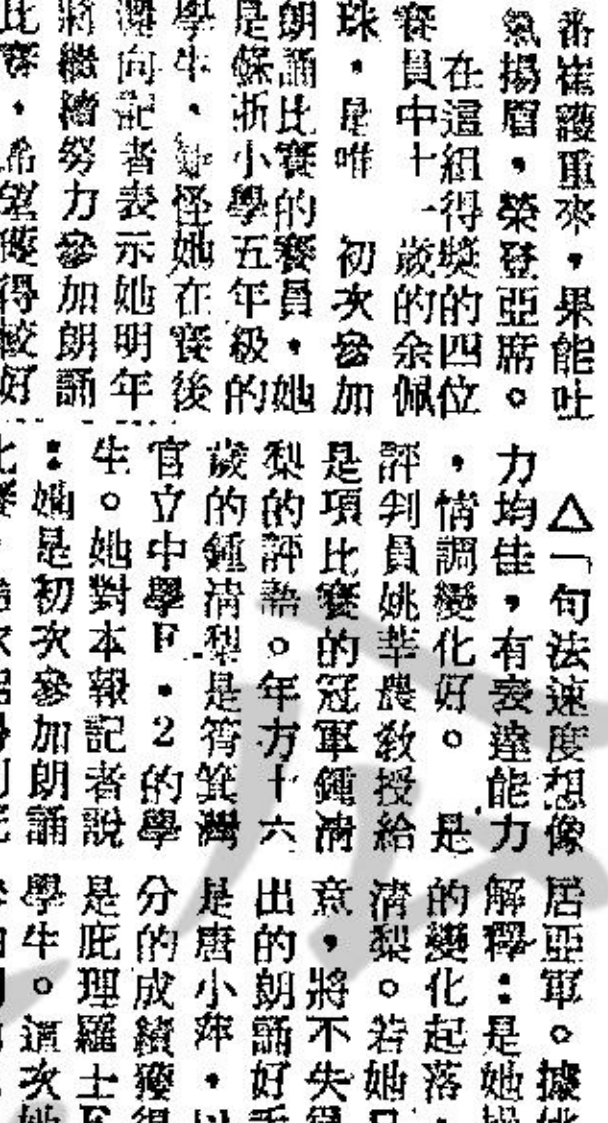 番崔護重來，果能吐
氣揚眉，榮登亞席。
在這組得獎的四位
賽員中十一歲的余佩
珠，是唯　初次參加
朗誦比賽的賽員，她
是蘇浙小學五年級的
學生，她在賽後
向記者表示她明年
將繼續努力參加朗誦
比賽，希望獲得較好
△「句法速度想像
力均佳，有表達能力
，情調變化好。　是
評判員姚莘農教授給
是項比賽的冠軍鍾清
梨的評語。年方十六
歲的鍾清梨是筲箕灣
官立中學F．2的學
生。她對本報記者說
：她是初次參加朗誦
居亞軍。據
解釋：是她
的變化起落，
清梨。若她
意，將不失
出的朗誦好
是唐小萍，
分的成績獲
是庇理羅士
學生。這次